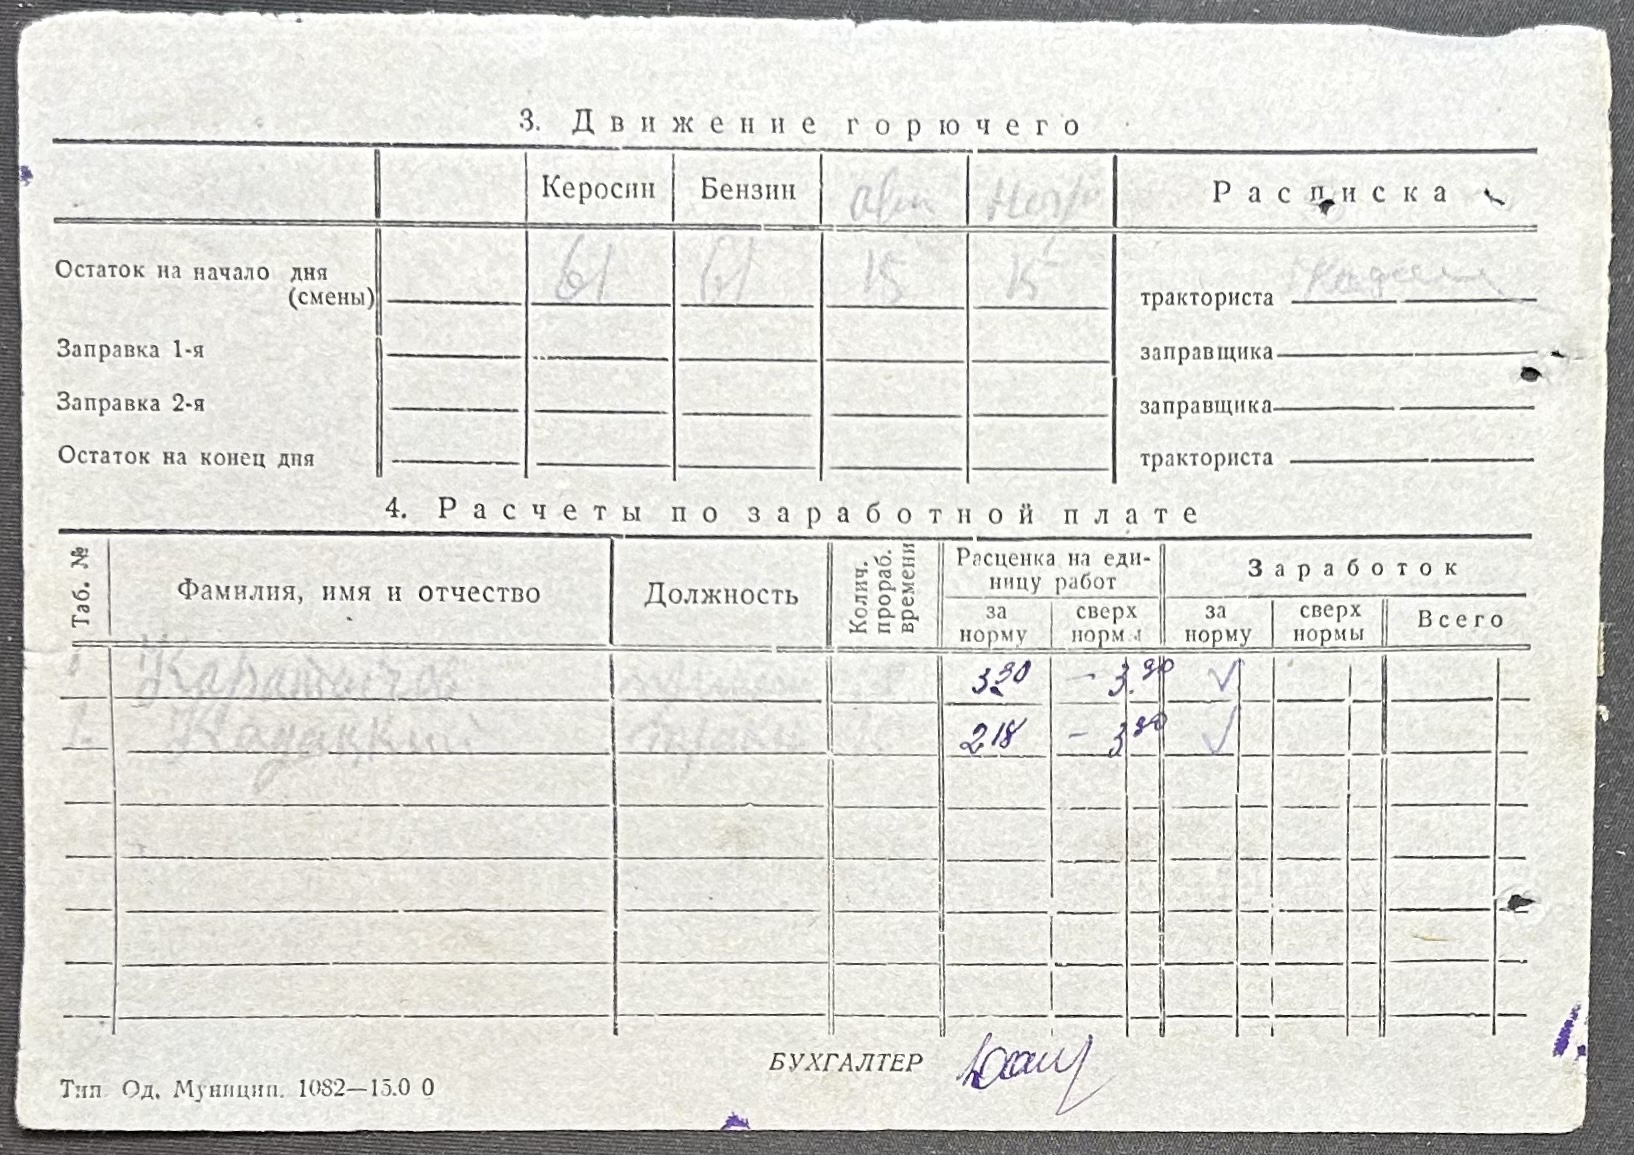 3. Движение горючего
Керосин Бензин Расписка
Остаток на начало дня
(смены) 61 61 15 15 тракториста
Заправка 1-я заправщика
Заправка 2-я заправщика
Остаток на конец дня тракториста
4. Расчеты по заработной плате
Таб. № Фамилия, имя и отчество Должность Колич. прораб. времени
Расценка на еди-
ницу работ
Заработок
за
норму
сверх
нормы
за
норму
сверх
нормы
Всего
3 90 - 3.90 ✓
2 18 - 3 90 ✓
БУХГАЛТЕР
Тип. Од. Муницип. 1082—15.0 0